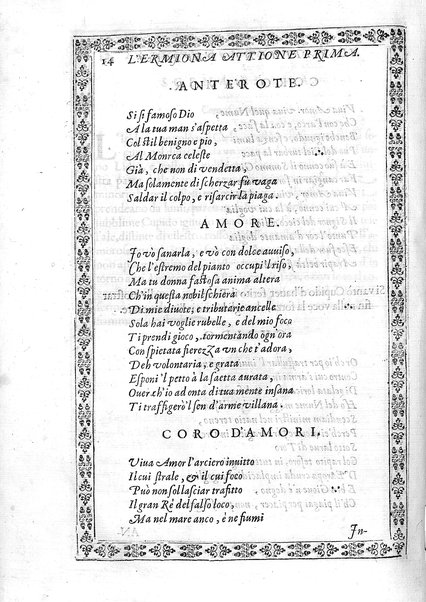 14 L'ERMIONA ATTIONE PRIMA.
ANTEROTE.
Si si famoso Dio
A la tua man s'aspetta
Col stil benigno e pio,
Al Monrca celeste
Già, che non di vendetta,
Ma solamente di scherzar fù vaga
Saldar il colpo, e risarcir la piaga.
AMORE.
Io vò sanarla, e vò con dolce auuiso,
Che l'estremo del pianto occupi'l riso,
Ma tu donna fastosa anima altera
Ch'in questa nobil schiera
Di mie diuote, e tributarie ancelle
Sola hai voglie rubelle, e del mio foco
Ti prendi gioco, tormentando ogn'ora
Con spietata fierezza vn che t'adora,
Deh volontaria, e grata
Esponi 'l petto à la saetta aurata,
Ouer ch'io ad onta di tua mente insana
Ti traffigerò l sen d'arme villana.
CORO D'AMORI.
Viua Amor l'arciero inuitto
Il cui strale, & il cui foco
Può non sol lasciar trafitto
Il gran Rè del salso loco,
Ma nel mare anco, è ne fiumi
In-